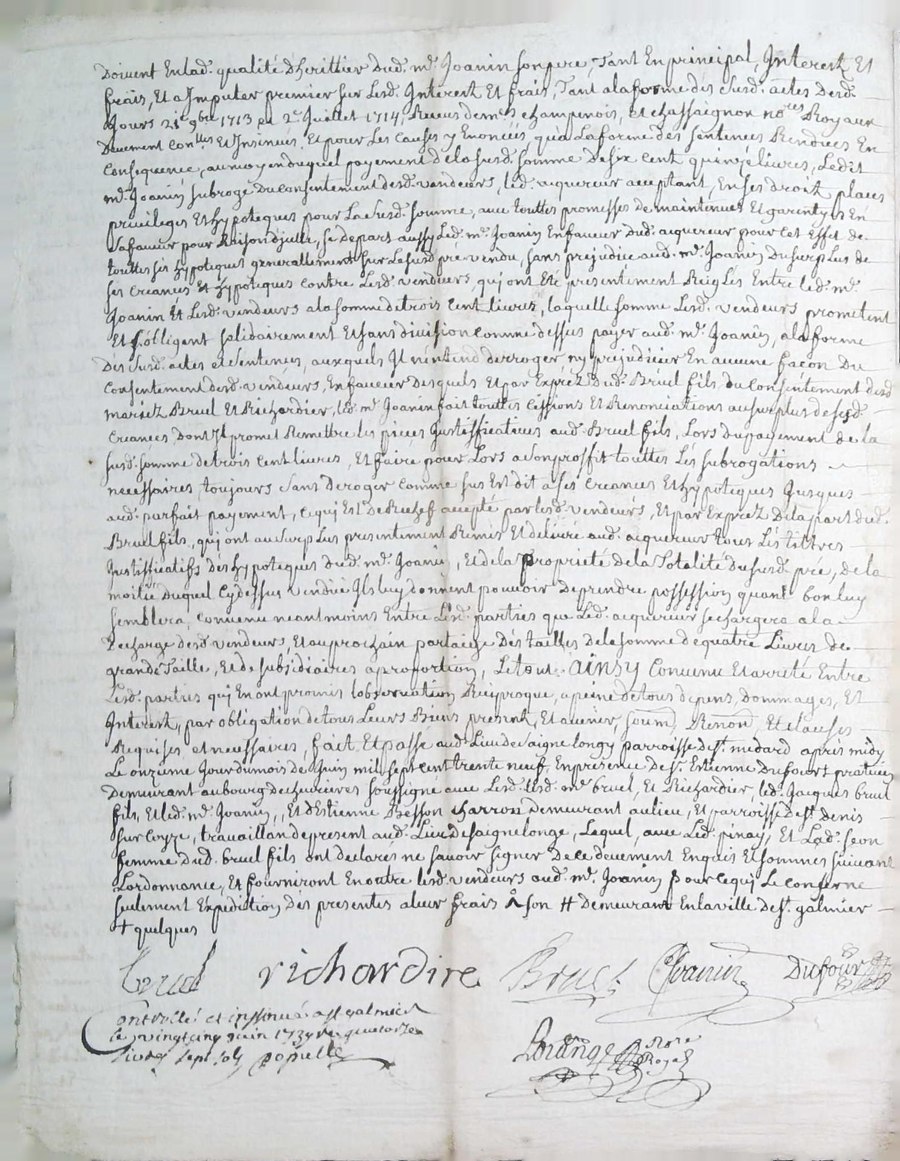 doivent Enlad. qualité dherittier dud. mr. Joanin son pere, Tant En principal, Interest Et
frais, Et a Imputer premier sur lesd. Interest Et frais, Tant a la forme des susd. actes desd.
Jours 21e 9bre 1713 et 2e Juillet 1714, Receus de mes champenois, et chassaignon nores Royaux
deuement conllés Et Insinués Et pour les causes y Enoncées qu'a la forme des sentences Rendües En
Consequence, au moyen duquel payement de la susd. somme de six cent quinze livres, Ledit
mr. Joanin subroge du consentement desd. vendeurs, led. aquereur acceptant, En ses droits, places
privileges Et hypoteques pour La susd. somme, avec touttes promesses de maintenue Et garentye En
sa faveur pour Raison d'icelle, se depart aussy Led. mr. Joanin En faveur dud. aquereur pour cet Effet de
touttes ses hypoteques generallement sur Le susd. pre vendu, sans prejudice aud. mr. Joanin du surplus de
ses creances Et hypoteques contre Lesd. vendeurs qui ont Eté presentement Reiglés Entre led. mr.
Joanin Et Lesd. vendeurs a la somme de trois cent livres, laquelle somme Lesd. vendeurs promettent
Et s'obligent solidairement Et sans division comme dessus payer aud. mr. Joanin, a la forme
des susd. actes et sentences, auxquels Il n'intend derroger ny prejudicier En aucune façon du
Consentement desd. vendeurs, En faveur desquels Et par Exprèz dud. Bruel fils du consentement desd.
mariez Bruel Et Richardier, led. mr. Joanin fait touttes cessions Et Renonciations au surplus de sesd.
Creances dont Il promet Remettre les pieces Justifficatives aud. Bruel fils, Lors du payement de la
susd. somme de trois cent livres, Et faire pour Lors a son proffit touttes Les subrogations
necessaires, toujours sans deroger comme sus Est dit a ses creances Et hypoteques Jusques
aud. parfait payement, ce qui Est de Rechef accepté par lesd. vendeurs, Et par Exprèz de la part dud.
Bruel fils, qui ont au surplus presentement Remis Et delivré aud. aquereur tous Les tittres
Justifficatifs des hypoteques dud. mr. Joanin, Et de la propriété de la Totalité du susd. pre, de la
moitié duquel cy dessus vendüe Ils luy donnent pouvoir de prendre possession quant bon luy
semblera, convenu neantmoins Entre Lesd. parties que Led. acquereur se chargera a la
décharge desd. vendeurs, Et au prochain partaige des tailles de la somme de quatre Livres de
grande Taille, Et de subsidiaires a proportion, Le tout ainsy convenu Et arreté Entre
Lesd. parties qui En ont promis l'observation Reciproque, a peine de tous depens, dommages, Et
Interest, par obligation de tous Leurs Biens present, Et avenir, soum. Renon. Et clauses
Requises et necessaires, fait Et passé aud. Lieu de saigne longy parroisse de st. medard apres midy
Le onzieme Jour du mois de Juin mil sept cent trente neuf, En presence de sr. Estienne Dufour praticien
demeurant au bourg de chevrieres soussigné avec Lesd. mr. bruel, Et Richardier, led. Jacques bruel
fils, Et led. mr. Joanin, Et d'Estienne Besson charron demeurant au lieu, Et parroisse de st. denis
sur Coyze, travaillan de present aud. Lieu de saigne longe, Lequel, avec Led. pinay, Et Lad. seon
femme dud. bruel fils ont declarés ne savoir signer de ce deuement Enquis Et sommés suivant
L'ordonnance, Et fourniront En outre lesd. vendeurs aud. mr. Joanin pour ce qui Le conserne
seulement Expedittion des presentes a leur frais A son # Demeurant En la ville de st. galmier
+ quelques
bruel richardire Bruel Joanin Dufour
Controllé et insinué a st galmier
le vingt cinq juin 1739 R quatorze
livres sept sols popielle
Lorange Nore Royal